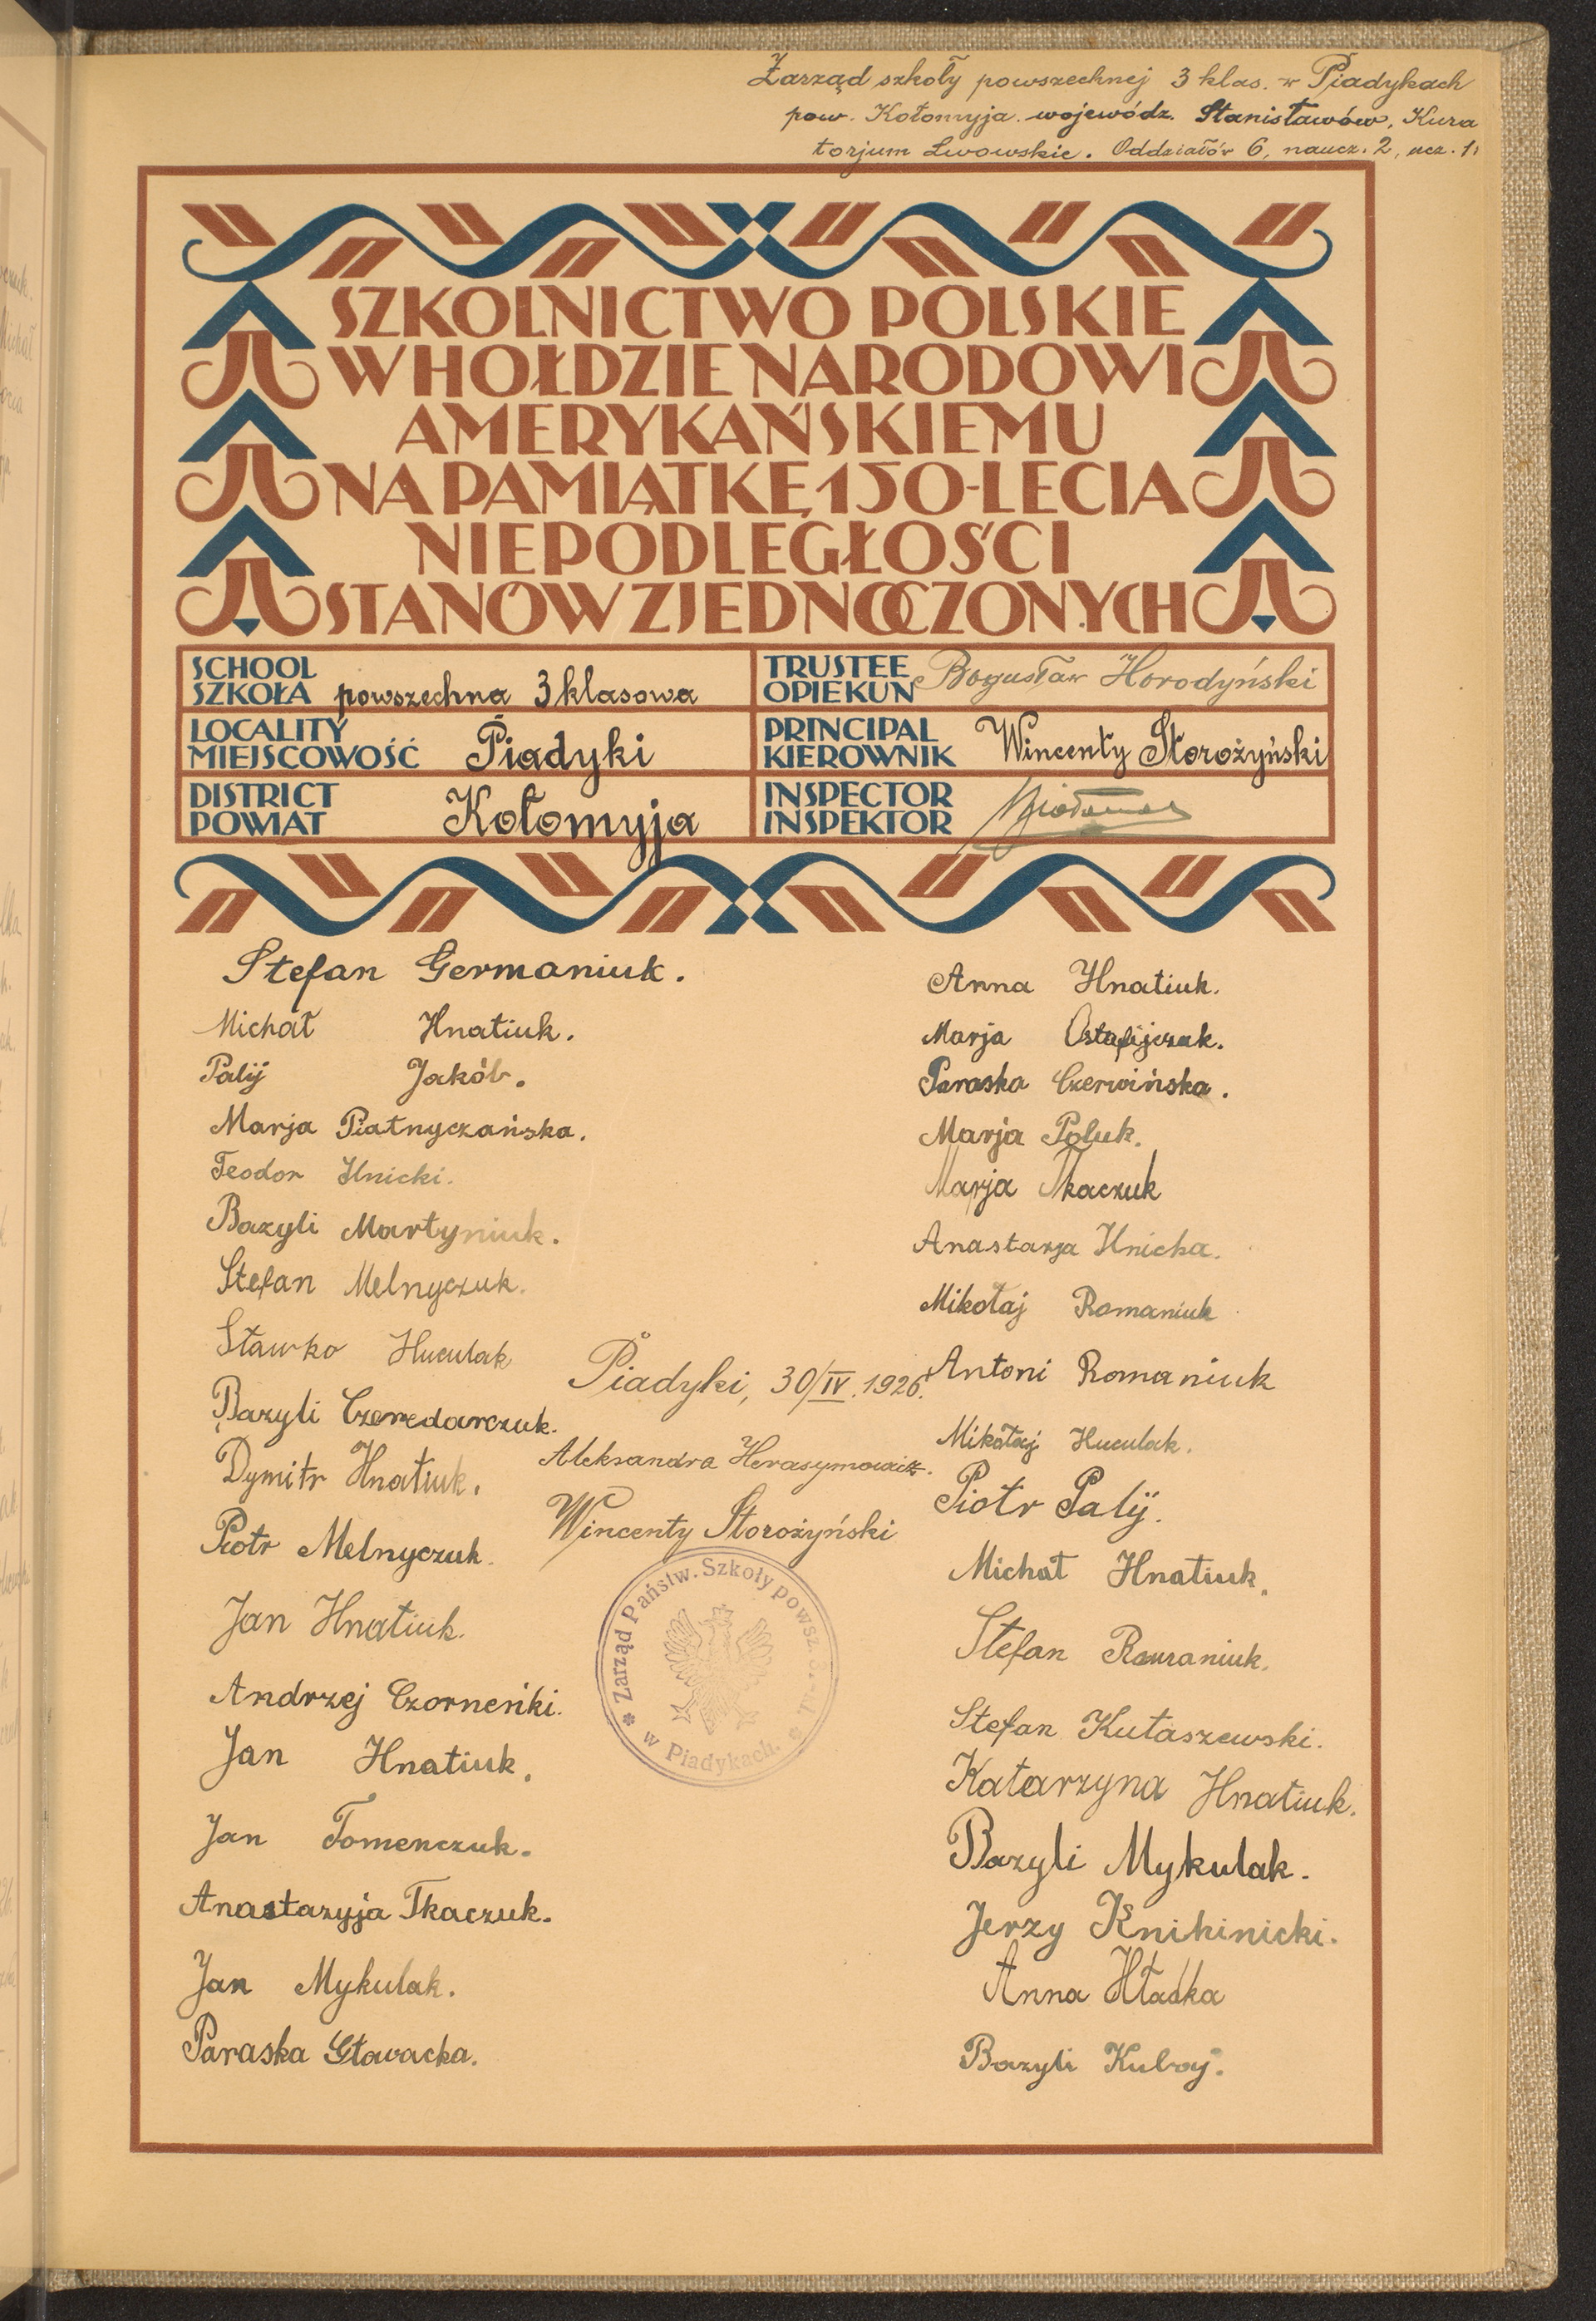 Zarząd szkoły powszechnej 3 klas. w Piadykach
pow. Kołomyja. wojewódz. Stanisławów, Kura
torjum Lwowskie. Oddziałów 6, naucz. 2, ucz. 1
SZKOLNICTWO POLSKIE
W HOŁDZIE NARODOWI
AMERYKAŃSKIEMU
NA PAMIĄTKĘ 150-LECIA
NIEPODLEGŁOŚCI
STANÓW ZJEDNOCZONYCH
SCHOOL
SZKOŁA powszechna 3 klasowa
TRUSTEE
OPIEKUN Bogusław Horodyński
LOCALITY
MIEJSCOWOŚĆ Piadyki
PRINCIPAL
KIEROWNIK Wincenty Storożyński
DISTRICT
POWIAT Kołomyja
INSPECTOR
INSPEKTOR
Stefan Germaniuk.
Michał Hnatiuk.
Palij Jakób.
Marja Piatnyczańska.
Teodor Ilnicki.
Bazyli Martyniuk.
Stefan Melnyczuk.
Sławko Huculak
Bazyli Czeredarczuk.
Dymitr Hnatiuk.
Piotr Melnyczuk.
Jan Hnatiuk.
Andrzej Czorneńki.
Jan Hnatiuk.
Jan Tomenczuk.
Anastazyja Tkaczuk.
Jan Mykulak.
Paraska Gławacka.
Piadyki, 30/IV. 1926.
Aleksandra Herasymowicz.
Wincenty Storożyński
Zarząd Państw. Szkoły powsz.
w Piadykach.
Anna Hnatiuk.
Marja Ostafijczuk.
Paraska Czerwińska.
Marja Poluk.
Marja Tkaczuk
Anastazja Ilnicka.
Mikołaj Romaniuk
Antoni Romaniuk
Mikołaj Huculak.
Piotr Palij.
Michał Hnatiuk.
Stefan Romaniuk.
Stefan Kułaszewski.
Katarzyna Hnatiuk.
Bazyli Mykulak.
Jerzy Knihinicki.
Anna Hładka
Bazyli Kubay.